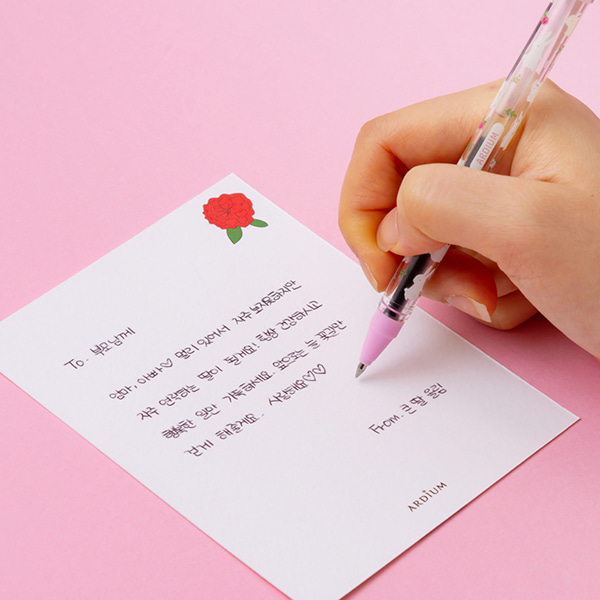 To. 부모님께
엄마, 아빠♡ 멀리 있어서 자주 못 봬요하지만
자주 연락하는 딸이 될게요! 항상 건강하시고
행복한 일만 가득하세요. 앞으로는 늘 꽃길만
걷게 해줄게요. 사랑해요♡♡
From. 큰 딸 올림
ARDIUM
ARDIUM